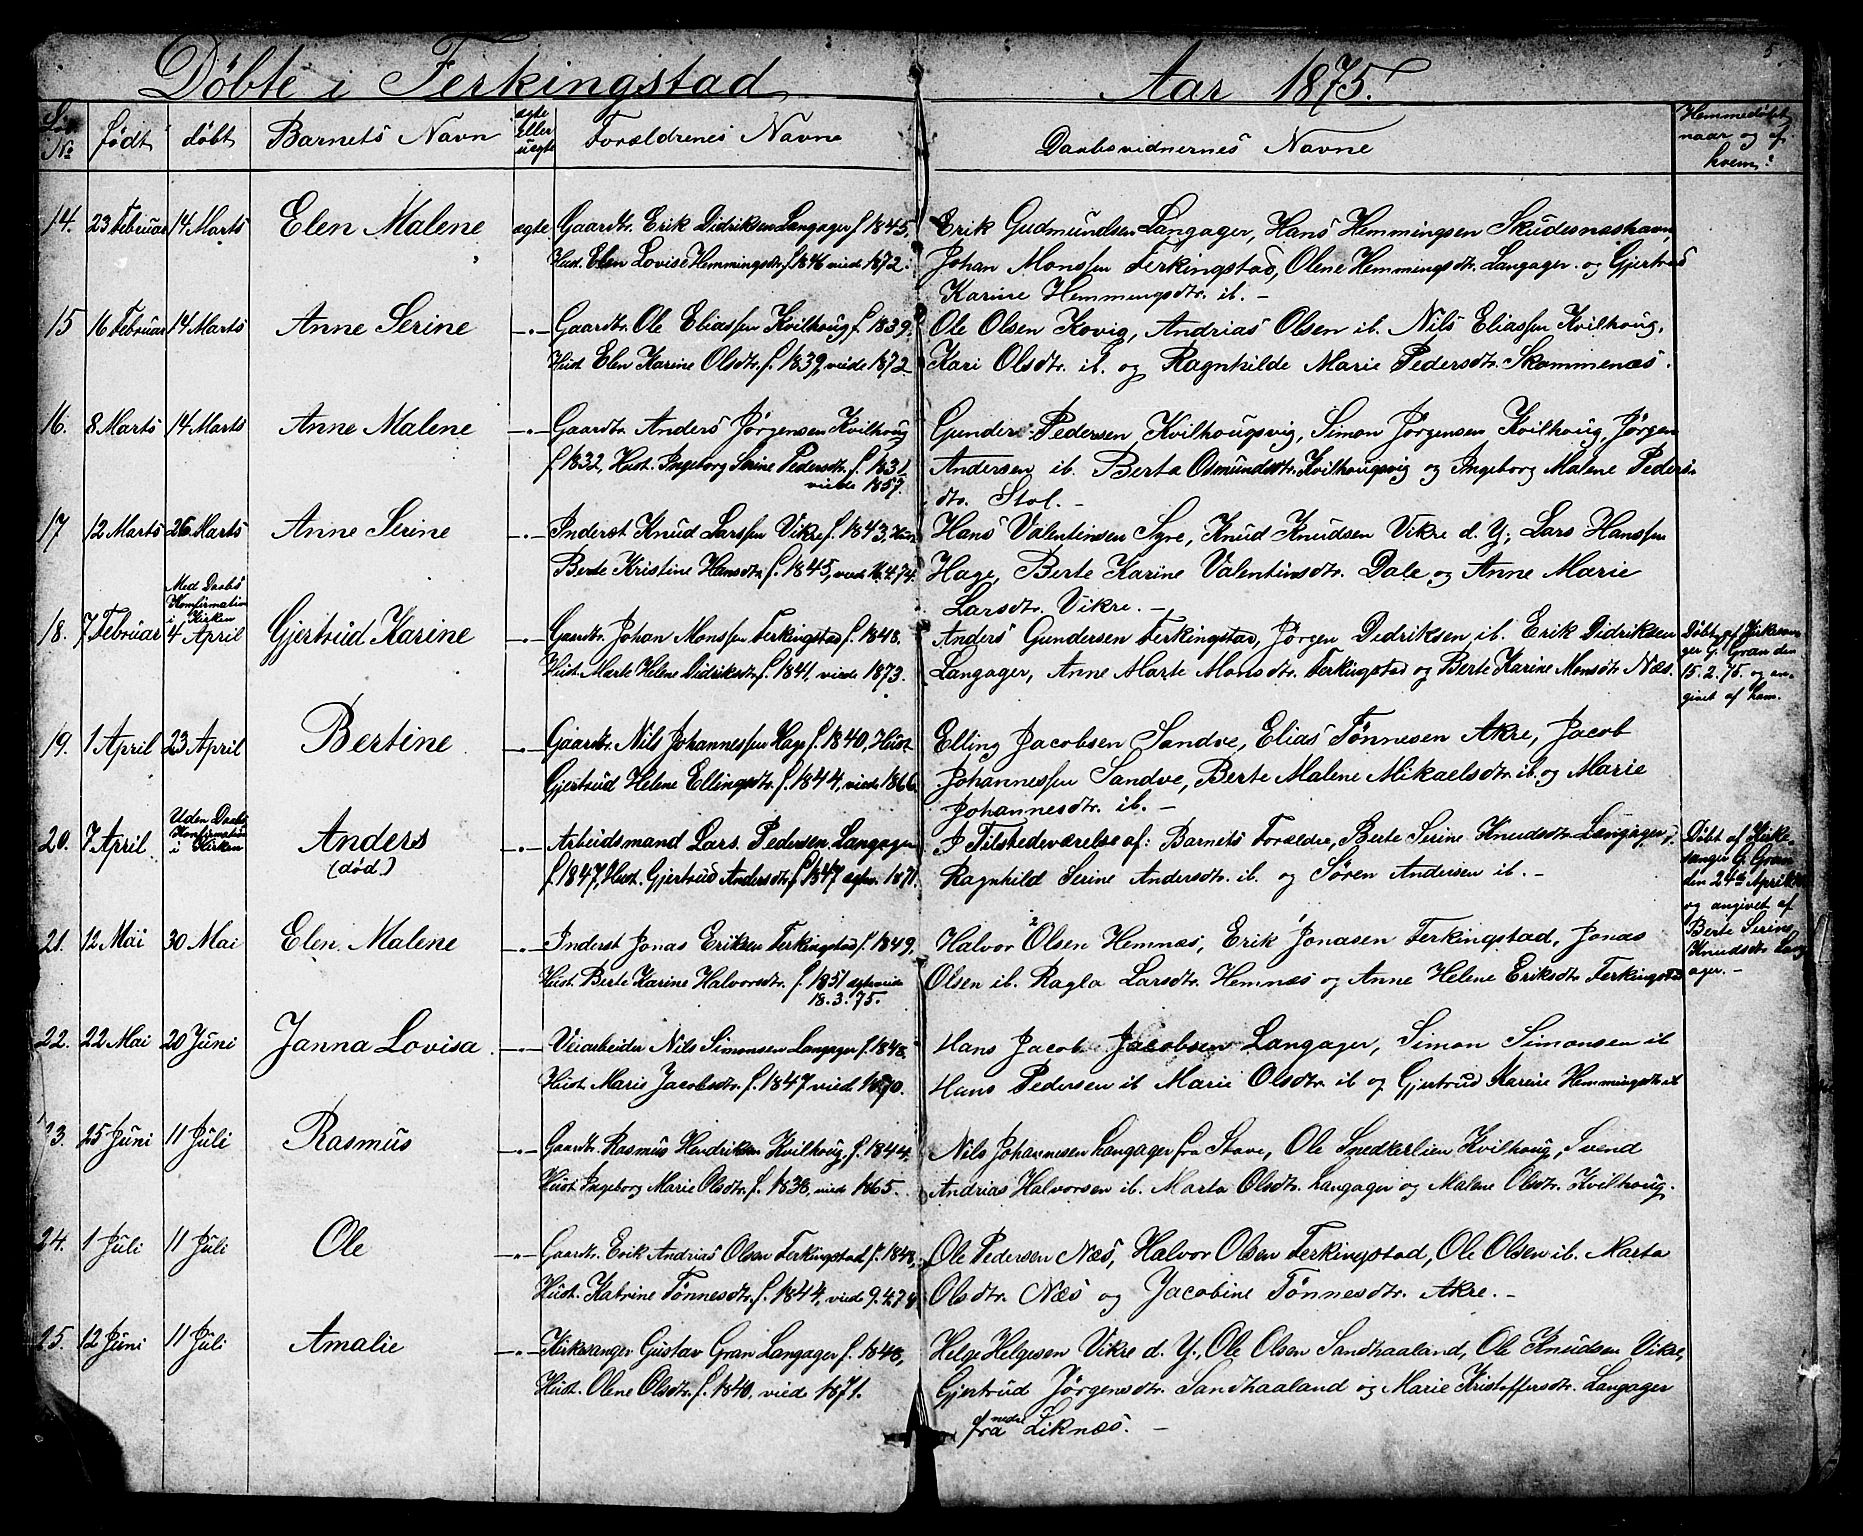 Døbte i Ferkingstad Aar 1875.
5
Løb. No født døbt Barnets Navn ægte Eller uægte Forældrenes Navne Daabsvidnernes Navne Hjemmedøbt naar og af hvem?
14. 23 Februar 14 Marts Elen Malene ægte Gaardbr. Erik Didriksen Langager f. 1845. Erik Gudmundsen Langager, Hans Hemmingsen Skudesnæshavn,
Hust. Elen Lovise Hemmingsdtr. f. 1846 viede 1872. Johan Monssen Ferkingstad, Olene Hemmingsdtr. Langager. og Gjertrud
Karine Hemmingsdtr. ib. -
15 16 Februar 14 Marts Anne Serine -"- Gaardbr. Ole Eliassen Kvilhoug f. 1839. Ole Olsen Kovig, Andrias Olsen ib. Nils Eliassen Kvilhoug,
Hust Elen Karine Olsdtr. f. 1839, viede 1872. Kari Olsdtr. ib. og Ragnhilde Marie Pedersdtr. Skammenæs.
16. 8 Marts 14 Marts Anne Malene -"- Gaardbr. Anders Jørgensen Kvilhoug Gunder Pedersen Kvilhougsvig, Simon Jørgensen Kvilhoug, Jørgen
f. 1832, Hust. Ingeborg Serine Pedersdtr. f. 1831. Andersen ib. Berta Osmundsdtr. Kvilhougsvig og Ingeborg Malene Peders-
viede 1857. dtr. Stol. -
17 12 Marts 26 Marts Anne Serine -"- Inderst Knud Larssen Vikre f. 1843. Hust. Hans Valentinsen Syre, Knud Knudsen Vikre d. Y., Lars Hanssen
Berte Kristine Hansdtr. f. 1845, viede 16.4.74. Hage, Berte Karine Valentinsdtr. Dale og Anne Marie
Larsdtr. Vikre. -
Med Daabs
Konfirmation
i Kirken
18. 7 Februar 4 April Gjertrud Karine -"- Gaardbr. Johan Monssen Ferkingstad f. 1848. Anders Gundersen Ferkingstad, Jørgen Didriksen ib. Erik Didriksen Døbt af Kirkesan-
ger G. Gran den
Hust. Marte Helene Didriksdtr. f. 1841, viede 1873. Langager, Anne Marte Monsdtr. Ferkingstad og Berte Karine Monsdtr. Næs. 15. 2. 75. og an-
givet af ham.
19. 1 April 23 April Bertine -"- Gaardbr. Nils Johannessen Hage f. 1840, Hust Elling Jacobsen Sandve, Elias Tönnesen Akre, Jacob
Gjertrud Helene Ellingsdtr. f. 1844, viede 1866. Johannessen Sandve, Berte Malene Mikaelsdtr. ib. og Marie
Johannesdtr. ib. -
Uden Daabs
Konfirmation
i Kirken
20. 7 April Anders -"- Arbeidsmand Lars Pedersen Langager I Tilstedeværelse af: Barnets Forældre, Berte Serine Knudsdtr. Langager, Døbt af Kirke-
(død) f. 1847, Hust. Gjertrud Andersdtr. f. 1847 1871. Ragnhild Serine Andersdtr. ib. og Søren Andersen ib. - sanger G. Gran
den 24de April
og angivet af
Berte Serine
Knudsdtr. Lang
ager. -
21. 12 Mai 30 Mai Elen Malene -"- Inderst Jonas Eriksen Ferkingstad f. 1849, Halvor 2 Olsen Hemnæs, Erik 1 Jonasen Ferkingstad, Jonas
Hust. Berte Karine Halvorsdtr. f. 1851 Olsen ib. Ragla Larsdtr. Hemnæs og Anne Helene Eriksdtr Ferkingstad
18. 3. 75.
22. 22 Mai 20 Juni Janna Lovisa -"- Veiarbeider Nils Simonsen Langager f. 1848. Hans Jacob Jacobsen Langager, Simon Simonsen ib
Hust. Marie Jacobsdtr. f. 1847 viede 1870. Hans Pedersen ib Marie Olsdtr. ib og Gjertrud Karine Hemmingsdtr ib
23. 25 Juni 11 Juli Rasmus -"- Gaardbr. Rasmus Hendriksen Kvilhoug, f. 1844. Nils Johannesen Langager fra Stave, Ole Snedkerlien Kvilhoug, Svend
Hust. Ingeborg Marie Olsdtr. f. 1838, viede 1865. Andrias Halvorsen ib. Marta Olsdtr. Langager og Malene Olsdtr. Kvilhoug.
24. 1 Juli 11 Juli Ole -"- Gaardbr. Erik Andrias Olsen Ferkingstad f. 1848, Ole Pedersen Næs, Halvor Olsen Ferkingstad, Ole Olsen ib. Marta
Hust. Katrine Tönnesdtr. f. 1844, viede 9.4.74 Olsdtr. Næs og Jacobine Tönnesdtr. Akre. -
25. 12 Juni 11 Juli Amalie -"- Kirkesanger Gustav Gran Langager f. 1848, Helge Helgesen Vikre d. Y., Ole Olsen Sandhaaland, Ole Knudsen Vikre,
Hust. Olene Olsdtr. f. 1840, viede 1871. Gjertrud Jørgensdtr. Sandhaaland og Marie Kristoffersdtr. Langager
fra nedre Liknæs. -